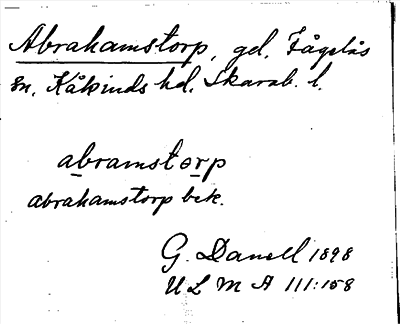 Abrahamstorp, gd, Fågelås
sn, Kåkinds hd, Skarab. l.
abramstorp
abrahamstorp bek.
G. Danell 1898
ULMA 111:158